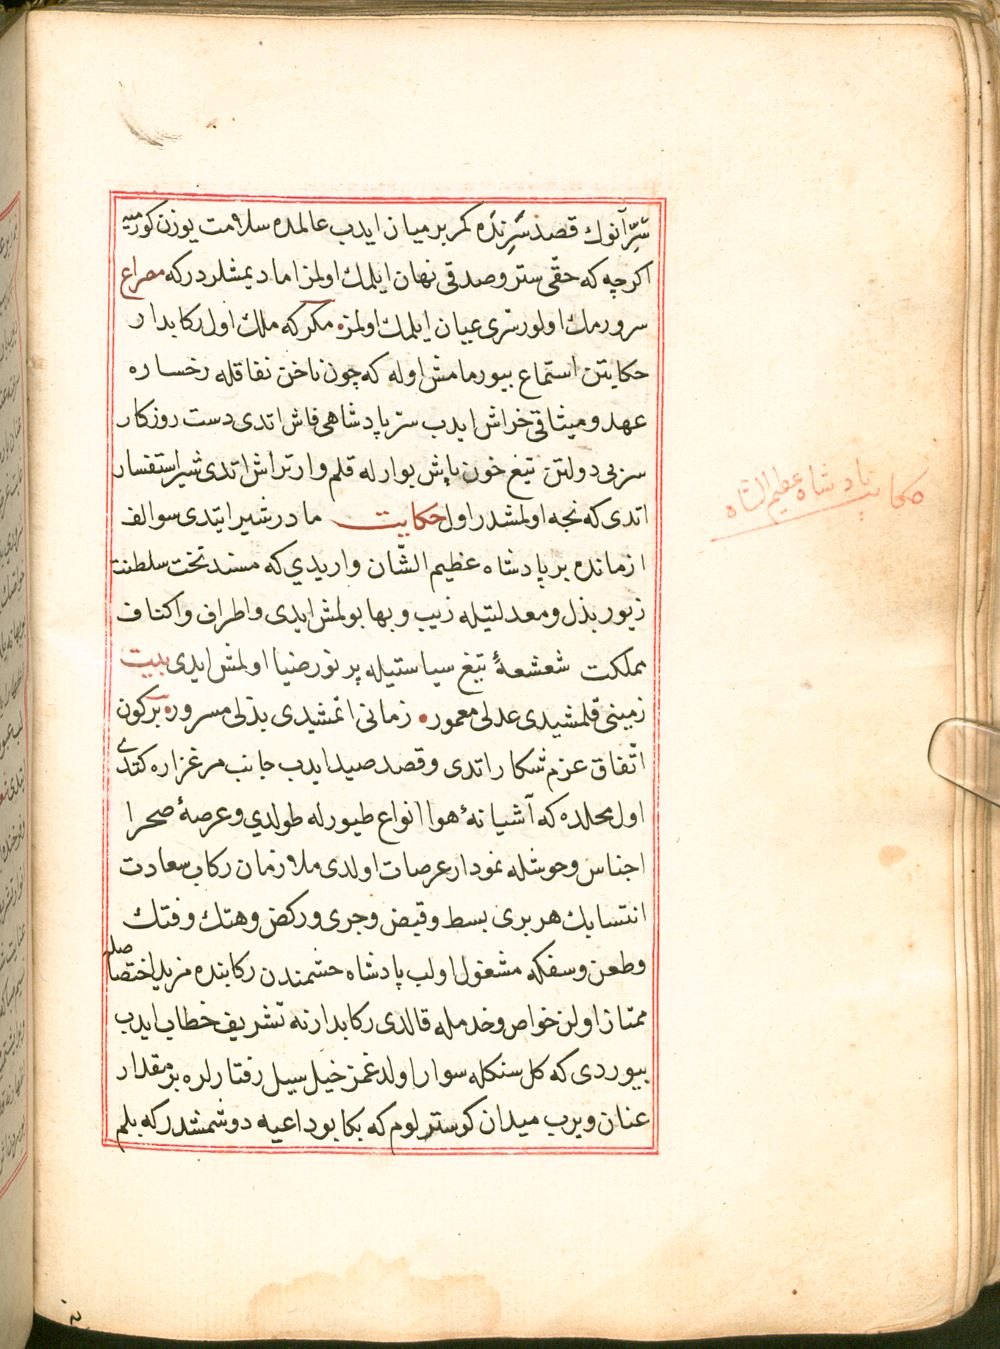 شرّ آنوك قصد شرنده كمر بر ميان ايدب عالمده سلامت يوزن كورميه
اكرچه كه حقّى ستر و صدقى نهان ايلمك اولمز اما ديمشلردر كه مصراع
سر ويرمك اولور سرّى عيان ايلمك اولمز مكر كه ملك اول ركابدار
حكايتن استماع بيورمامش اوله كه چون ناخن نفاقله رخساره
عهد و ميثاقى خراش ايدب سرّ پادشاهى فاش اتدى دست روزكار
سر بى دولتن تيغ خون پاش بوار له قلم وار تراش اتدى شير استفسار
اتدى كه نجه اولمشدر اول حكايت مادر شير ايتدى سوالف
ازمانده بر پادشاه عظيم الشّان واريدي كه مسند تخت سلطنت
زيور بذل و معدلتيله زيب و بها بولمش ايدى و اطراف و اكناف
مملكت شعشعهٔ تيغ سياستيله پر نور ضيا اولمش ايدى بيت
زمينى قلمشيدى عدلى معمور زمانى اتمشيدى بذلى مسرور بر كون
اتّفاق عزم شكار اتدى و قصد صيد ايدب جانب مرغزاره كتدى
اول محلده كه آشيانهٔ هوا انواع طيور له طولدي و عرصهٔ صحرا
اجناس وحوشله نمودار عرصات اولدى ملازمان ركاب سعادت
انتسابك هر برى بسط و قبض و جرى و ركض و هتك و فتك
و طعن و سفكه مشغول اولب پادشاه حشمندن ركابنده مزيد اختصاصله
ممتاز اولن خواص و خدمله قالدى ركابدارنه تشريف خطاب ايدب
بيوردى كه كل سنكله سوار اولد غمز خيل سيل رفتارلره بر مقدار
عنان ويرب ميدان كوستر لوم كه بكا بو داعيه دوشمشدر كه بلم
حكايت پادشاه عظيم الشان